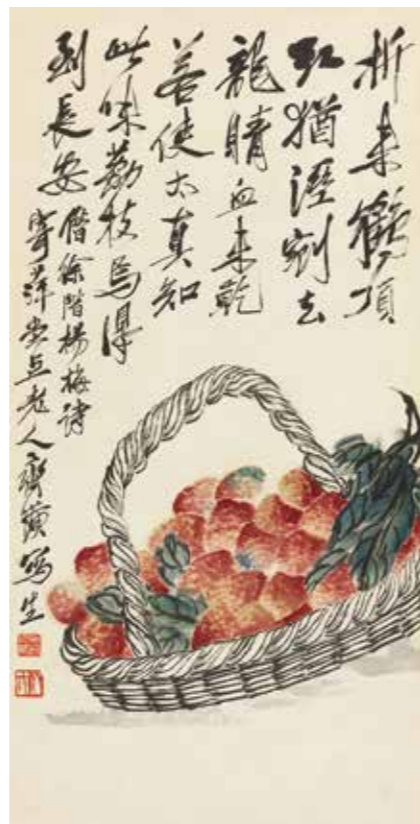 折來鶴頂
紅猶溼剜去
龍睛血未乾
若使太真知
此味荔枝焉得
到長安
借徐階楊梅詩
寄萍堂上老人齊璜寫生